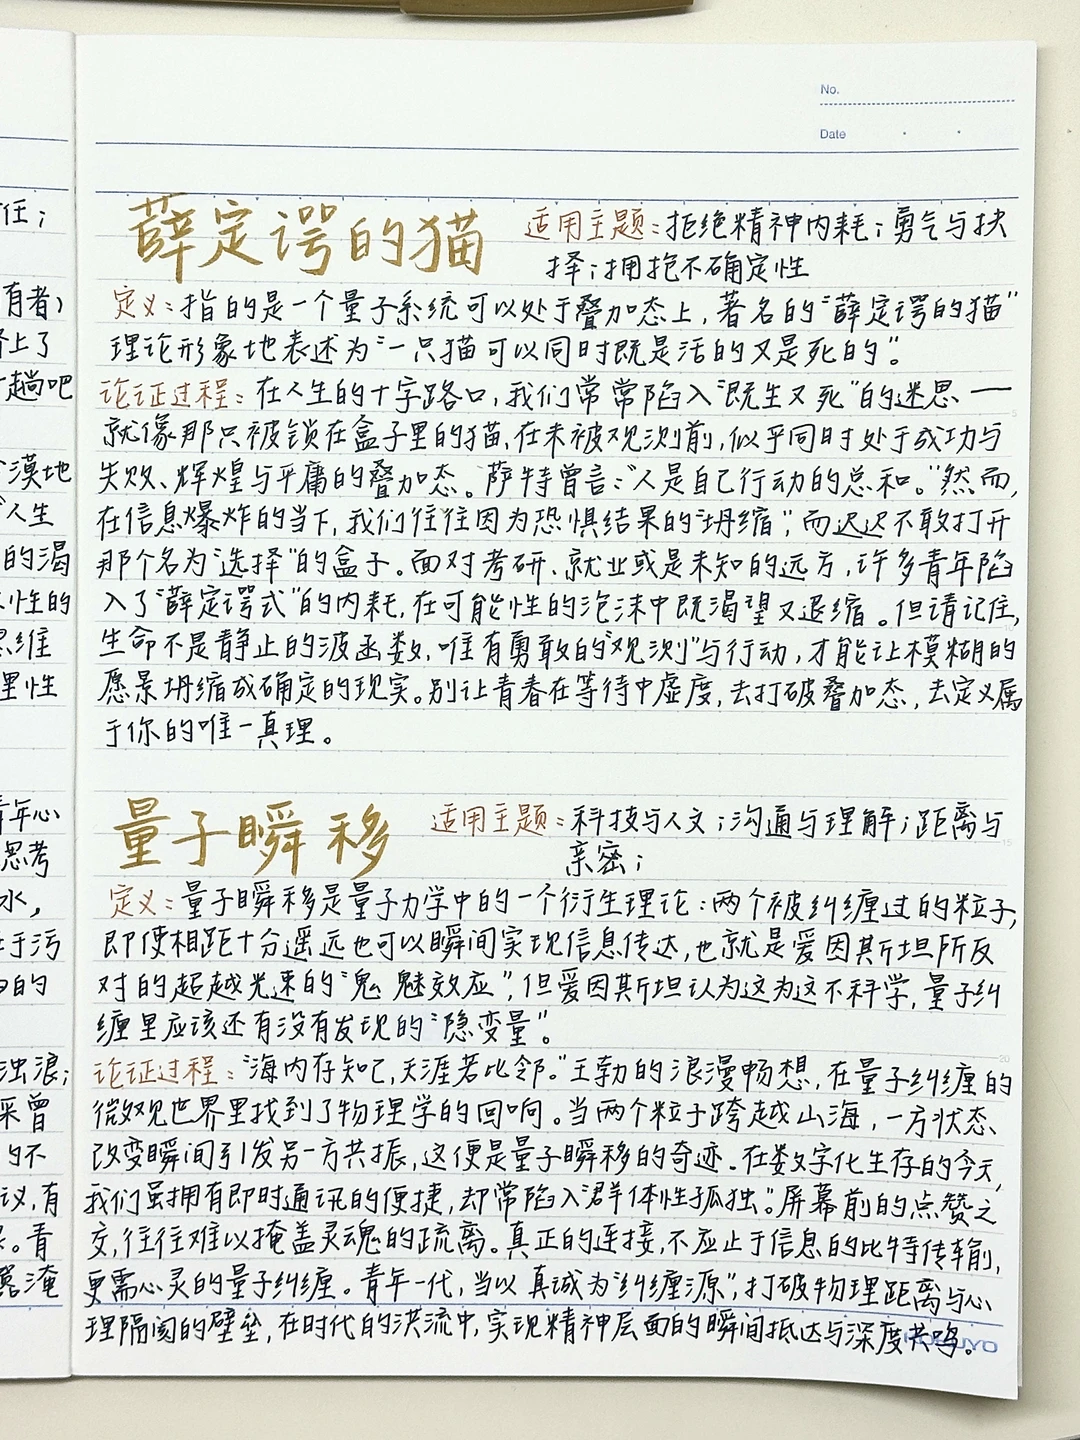 No.
Date
任；
有者）
上了
趟吧
漠地
人生
的渴
性的
思维
理性
青年心
思考
水，
于污
的
浊浪；
采曾
的不
议，有
。青
淹
薛定谔的猫 适用主题：拒绝精神内耗；勇气与抉
择；拥抱不确定性
定义：指的是一个量子系统可以处于叠加态上，著名的“薛定谔的猫”
理论形象地表述为“一只猫可以同时既是活的又是死的”。
论证过程：在人生的十字路口，我们常常陷入“既生又死”的迷思——
就像那只被锁在盒子里的猫，在未被观测前，似乎同时处于成功与
失败、辉煌与平庸的叠加态。萨特曾言：“人是自己行动的总和。”然而，
在信息爆炸的当下，我们往往因为恐惧结果的“坍缩”，而迟迟不敢打开
那个名为“选择”的盒子。面对考研、就业或是未知的远方，许多青年陷
入了“薛定谔式”的内耗，在可能性的泡沫中既渴望又退缩。但请记住，
生命不是静止的波函数，唯有勇敢的“观测”与行动，才能让模糊的
愿景坍缩成确定的现实。别让青春在等待中虚度，去打破叠加态，去定义属
于你的唯一真理。
量子瞬移 适用主题：科技与人文；沟通与理解；距离与
亲密；
定义：量子瞬移是量子力学中的一个衍生理论：两个被纠缠过的粒子，
即使相距十分遥远也可以瞬间实现信息传达，也就是爱因斯坦所反
对的超越光速的“鬼魅效应”，但爱因斯坦认为这为这不科学，量子纠
缠里应该还有没有发现的“隐变量”。
论证过程：“海内存知己，天涯若比邻。”王勃的浪漫畅想，在量子纠缠的
微观世界里找到了物理学的回响。当两个粒子跨越山海，一方状态
改变瞬间引发另一方共振，这便是量子瞬移的奇迹。在数字化生存的今天，
我们虽拥有即时通讯的便捷，却常陷入“群体性孤独”。屏幕前的点赞之
交，往往难以掩盖灵魂的疏离。真正的连接，不应止于信息的比特传输，
更需心灵的量子纠缠。青年一代，当以真诚为“纠缠源”，打破物理距离与心
理隔阂的壁垒，在时代的洪流中，实现精神层面的瞬间抵达与深度共鸣。
KOKUYO